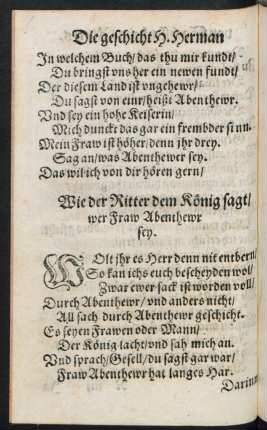 Die geschicht H. Herman
In welchem Buch/ das thu mir kundt/
Du bringst vns her ein newen fundt/
Der diesem Land ist vngehewr/
Du sagst von einr/ heißt Abenthewr.
Vnd sey ein hohe Keiserin/
Mich dunckt das gar ein frembder sinn.
Mein Fraw ist höher/ denn jhr drey.
Sag an/ was Abenthewer sey.
Das wil ich von dir hören gern/
Wie der Ritter dem König sagt/
wer Fraw Abenthewr
sey.
WOlt jhr es Herr denn nit entbern/
So kan ichs euch bescheyden wol/
Zwar ewer sack ist worden voll/
Durch Abenthewr/ vnd anders nicht/
All sach durch Abenthewr geschicht.
Es seyen Frawen oder Mann/
Der König lacht/ vnd sah mich an.
Vnd sprach/ Gesell/ du sagst gar war/
Fraw Abenthewr hat langes Har.